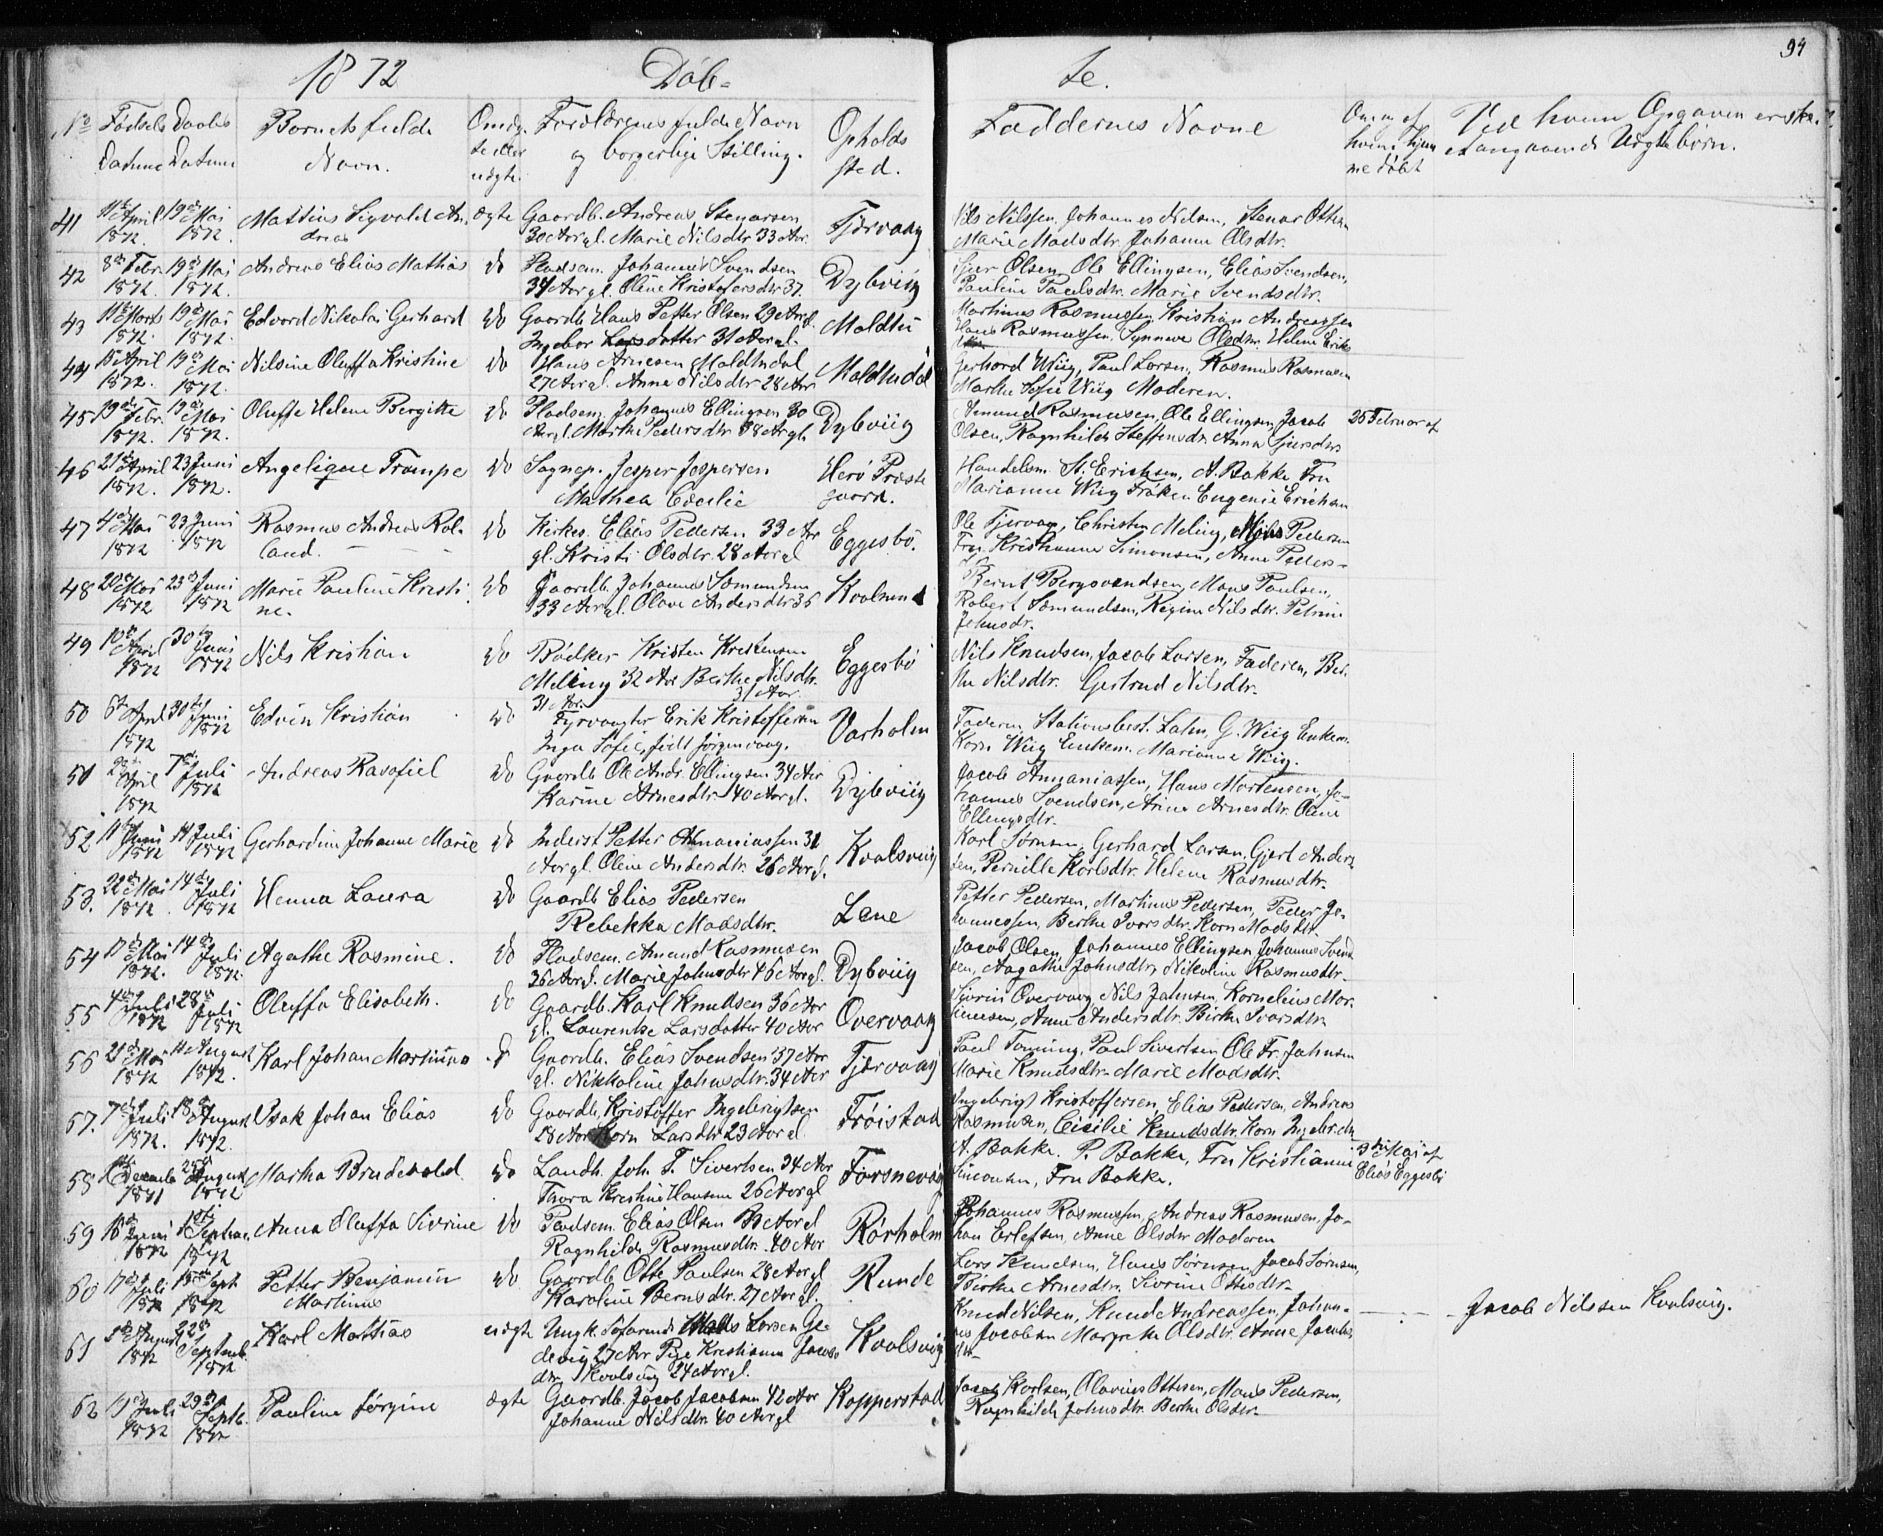 94
1872 Døb- te.
No Fødsels Daabs Barnets fulde Om æg- Forældrenes fulde Navn Opholds Faddernes Navne Om og af Ved hvem Opgaven er
Datum Datum Navn. te eller og borgerlige Stilling. sted. hvem hjem angaaende Uægte børn.
uægte. me døbt
41 11te April 19de Mai Mattius Sigvald An- ægte Gaardb. Andreas Stenarsen Tjørvaag Nils Nilssen, Johannes Nilsen, Stenar
1872. 1872. dreas 30 Aar gl. Marie Nilsdtr 33 Aar. Marie Madsdtr. Johanne Olsdtr.
42 8de Febr. 19de Mai Andreas Elias Mathias do Pladsem. Johannes Svendsen Dybviig Olsen, Ole Ellingsen, Elias Svendsen,
1872. 1872. 34 Aar gl. Oline Kristofersdtr 37. Pauline Paulsdtr. Marie Svendsdtr.
43 11te Marts 19de Mai Edvard Nikolai Gerhard do Gaardb. Hans Petter Olsen 29 Aar gl. Moldtu Martinus Rasmussen, Kristian Andreassen
1872. 1872. Ingebor Larsdatter 31 Aar gl. Hans Rasmussen, Synneve Olsdtr. Helene Eriks
44 15 April 19de Mai Nilsine Oluffa Kristine do Hans Arnesen Moldtudal Moldtudal Gerhard Wiig, Paul Larsen, Rasmus Rasmussen
1872. 1872. 27 Aar gl. Anne Nilsdtr 28 Aar Marthe Sofie Wiig Moderen.
45 19de Febr. 19de Mai Oluffe Helene Bergitte do Pladsem. Johannes Ellingsen 30 Dybviig Amund Rasmussen, Ole Ellingsen, Jacob 25 Februar af
1872. 1872. Aar gl. Marthe Pedersdtr 38 Aar gl. Olsen, Ragnhilde Steffensdtr. Anna Sjursdtr.
46 21de April 23 Juni Angelique Trampe do Sognep. Jesper Jespersen Herø Præste Handelsm. St. Erichsen, A. Bakke Fru
1872. 1872. Mathea Cecilie gaard. Marianne Wiig Frøken Eugenie Erichsen
47 4de Mai 23 Juni Rasmus Andreas Rol- do Kirkes. Elias Pedersen 33 Aar Eggesbø. Ole Tjørvaag, Christen Meling, Mons Pedersen
1872 1872 land. gl. Kristi Olsdtr. 28 Aar gl Fru Kristianne Simonsen, Anne Peders-
48 20de Mai 23de Juni Marie Pauline Kristi- do Gaardb. Johannes Samundsen Kvalsund Bernt Bergsvendsen, Mons Paulsen,
1872 1872 ne. 33 Aar gl. Olave Andersdtr 36 Robert Samundsen, Regine Nilsdtr. Petrine
Johnsdr.
49 10de April 30te Juni Nils Kristian do Bødker Kristen Kristensen Eggesbø Nils Knudsen, Jacob Larsen, Faderen, Ber-
1872 1872 Meling 32 Aar Berthe Nilsdtr. the Nilsdtr. Gertrud Nilsdtr.
31 Aar.
50 April 30te Juni Edvin Kristian do Fyrvogter Erik Kristoffersen Varholm Faderen Stationsbest. Lahn, G. Wiig Enkem.
1872 1872 Inga Sofie, født Jørgenvaag. Karn Wiig Enkem. Marianne Wiig.
51 April 7de Juli Andreas Rasafiel do Gaardb. Ole Andr. Ellingsen 34 Aar Dybviig Jacob Annaniassen, Hans Mortensen, Jo-
1872 1872 Karine Arnesdtr. 40 Aar gl. hannes Svendsen, Arine Arnesdtr. Oline
Ellingsdtr.
52 11te Juni 14 Juli Gerhardine Johanne Marie do Inderst Petter Annaniassen 31 Kvalsviig Karl Sørensen, Gerhard Larsen, Gjert Anders-
1872 1872 Aar gl. Oline Andersdtr. 26 Aar gl. sen, Pernille Karlsdtr. Helene Rasmusdtr.
53. 22de Mai 14de Juli Henna Laura do Gaardb Elias Pedersen Lene Petter Pedersen, Martinus Pedersen, Peder Jo-
1872 1872 Rebekka Madsdtr. hannessen, Berthe Ivarsdtr. Karn Madsdtr.
54 17de Mai 14de Juli Agathe Rasmine. do Pladsem. Amund Rasmussen Dybviig Jacob Olsen, Johannes Ellingsen, Johannes Svend-
1872. 1872. 36 Aar gl. Marie Johnsdtr 46 Aar gl. sen, Aagathe Johnsdtr, Nikoline Rasmusdtr.
55 4de Juli 28de Juli Oluffa Elisabeth. do Gaardb. Karl Knudsen 36 Aar Overvaag Sivrin Overvaag, Nils Johnsen, Kornelius Mor-
1872 1872 gl. Laurentse Larsdatter 40 Aar tensen, Anne Andersdtr. Birthe Ivarsdtr.
56 21de Mai 11 August Karl Johan Martinus do Gaardb. Elias Svendsen 37 Aar Tjørvaag Paul Tarning, Paul Sivertsen, Ole Fr. Johnsen
1872 1872. gl. Nikkoline Johnsdtr. 34 Aar Marie Knudsdtr. Marie Madsdtr.
57. 7de Juli 18de August Isak Johan Elias do Gaardb. Kristoffer Ingebrigtsen Frøistad Ingebrigt Kristoffersen, Elias Pedersen, Andreas
1872. 1872. 28 Aar Karn Larsdtr 23 Aar gl Rasmussen, Cicilie Knudsdtr. Karn Ingebr. dtr
58 Decemb 25de August Martha Brudevold do Landh. Joh. T. Sivertsen 34 Aar Fosnevaag A. Bakke. P. Bakke, Fru Kristianne 3de Mai af
1871 1872 Thora Kristine Hansen 26 Aar gl Simonsen, Fru Bakke. Elias Eggesbø
59 16de Juni 1ste Septbr. Anna Oluffa Sivrine do Pladsem. Elias Olsen Aar gl Rørholm Johannes Rasmussen, Andreas Rasmussen, Jo-
1872 1872 Ragnhilde Rasmusdtr. 40 Aar han Erlefsen, Anne Olsdtr Moderen
60 17de Juli 15de Sept Petter Benjamin do Gaardb. Otte Paulsen 28 Aar gl Runde Lars Knudsen, Hans Sørensen, Jacob Sørensen,
1872 1872 Martinus Karoline Berns dtr. 27 Aar gl. Birthe Arnesdtr. Sivrine Ottesdtr.
61 5te August 22de Septemb. Karl Mattias uægte Ungk. Søfarende Mads Larsen Ge- Kvalsvig Knud Nilsen, Knud Andreassen, Johan- Jacob Nilssen Kvalsvig.
1872 1872 devig 27 Aar Pige Kristianne Jacobs nes Jacobsen Margrethe Olsdtr. Anne Jacobs
dtr Kvalsvig 24 Aar gl. dtr
62 Juli 29de Septb. Pauline Jørgine ægte Gaardb. Jacob Jacobsen 42 Aar Kopperstad Jacob Karlsen, Olavius Ottesen, Mons Pedersen,
1872 1872 Johanne Nilsdtr. 40 Aar gl Ragnhilde Johnsdtr. Berthe Olsdtr.